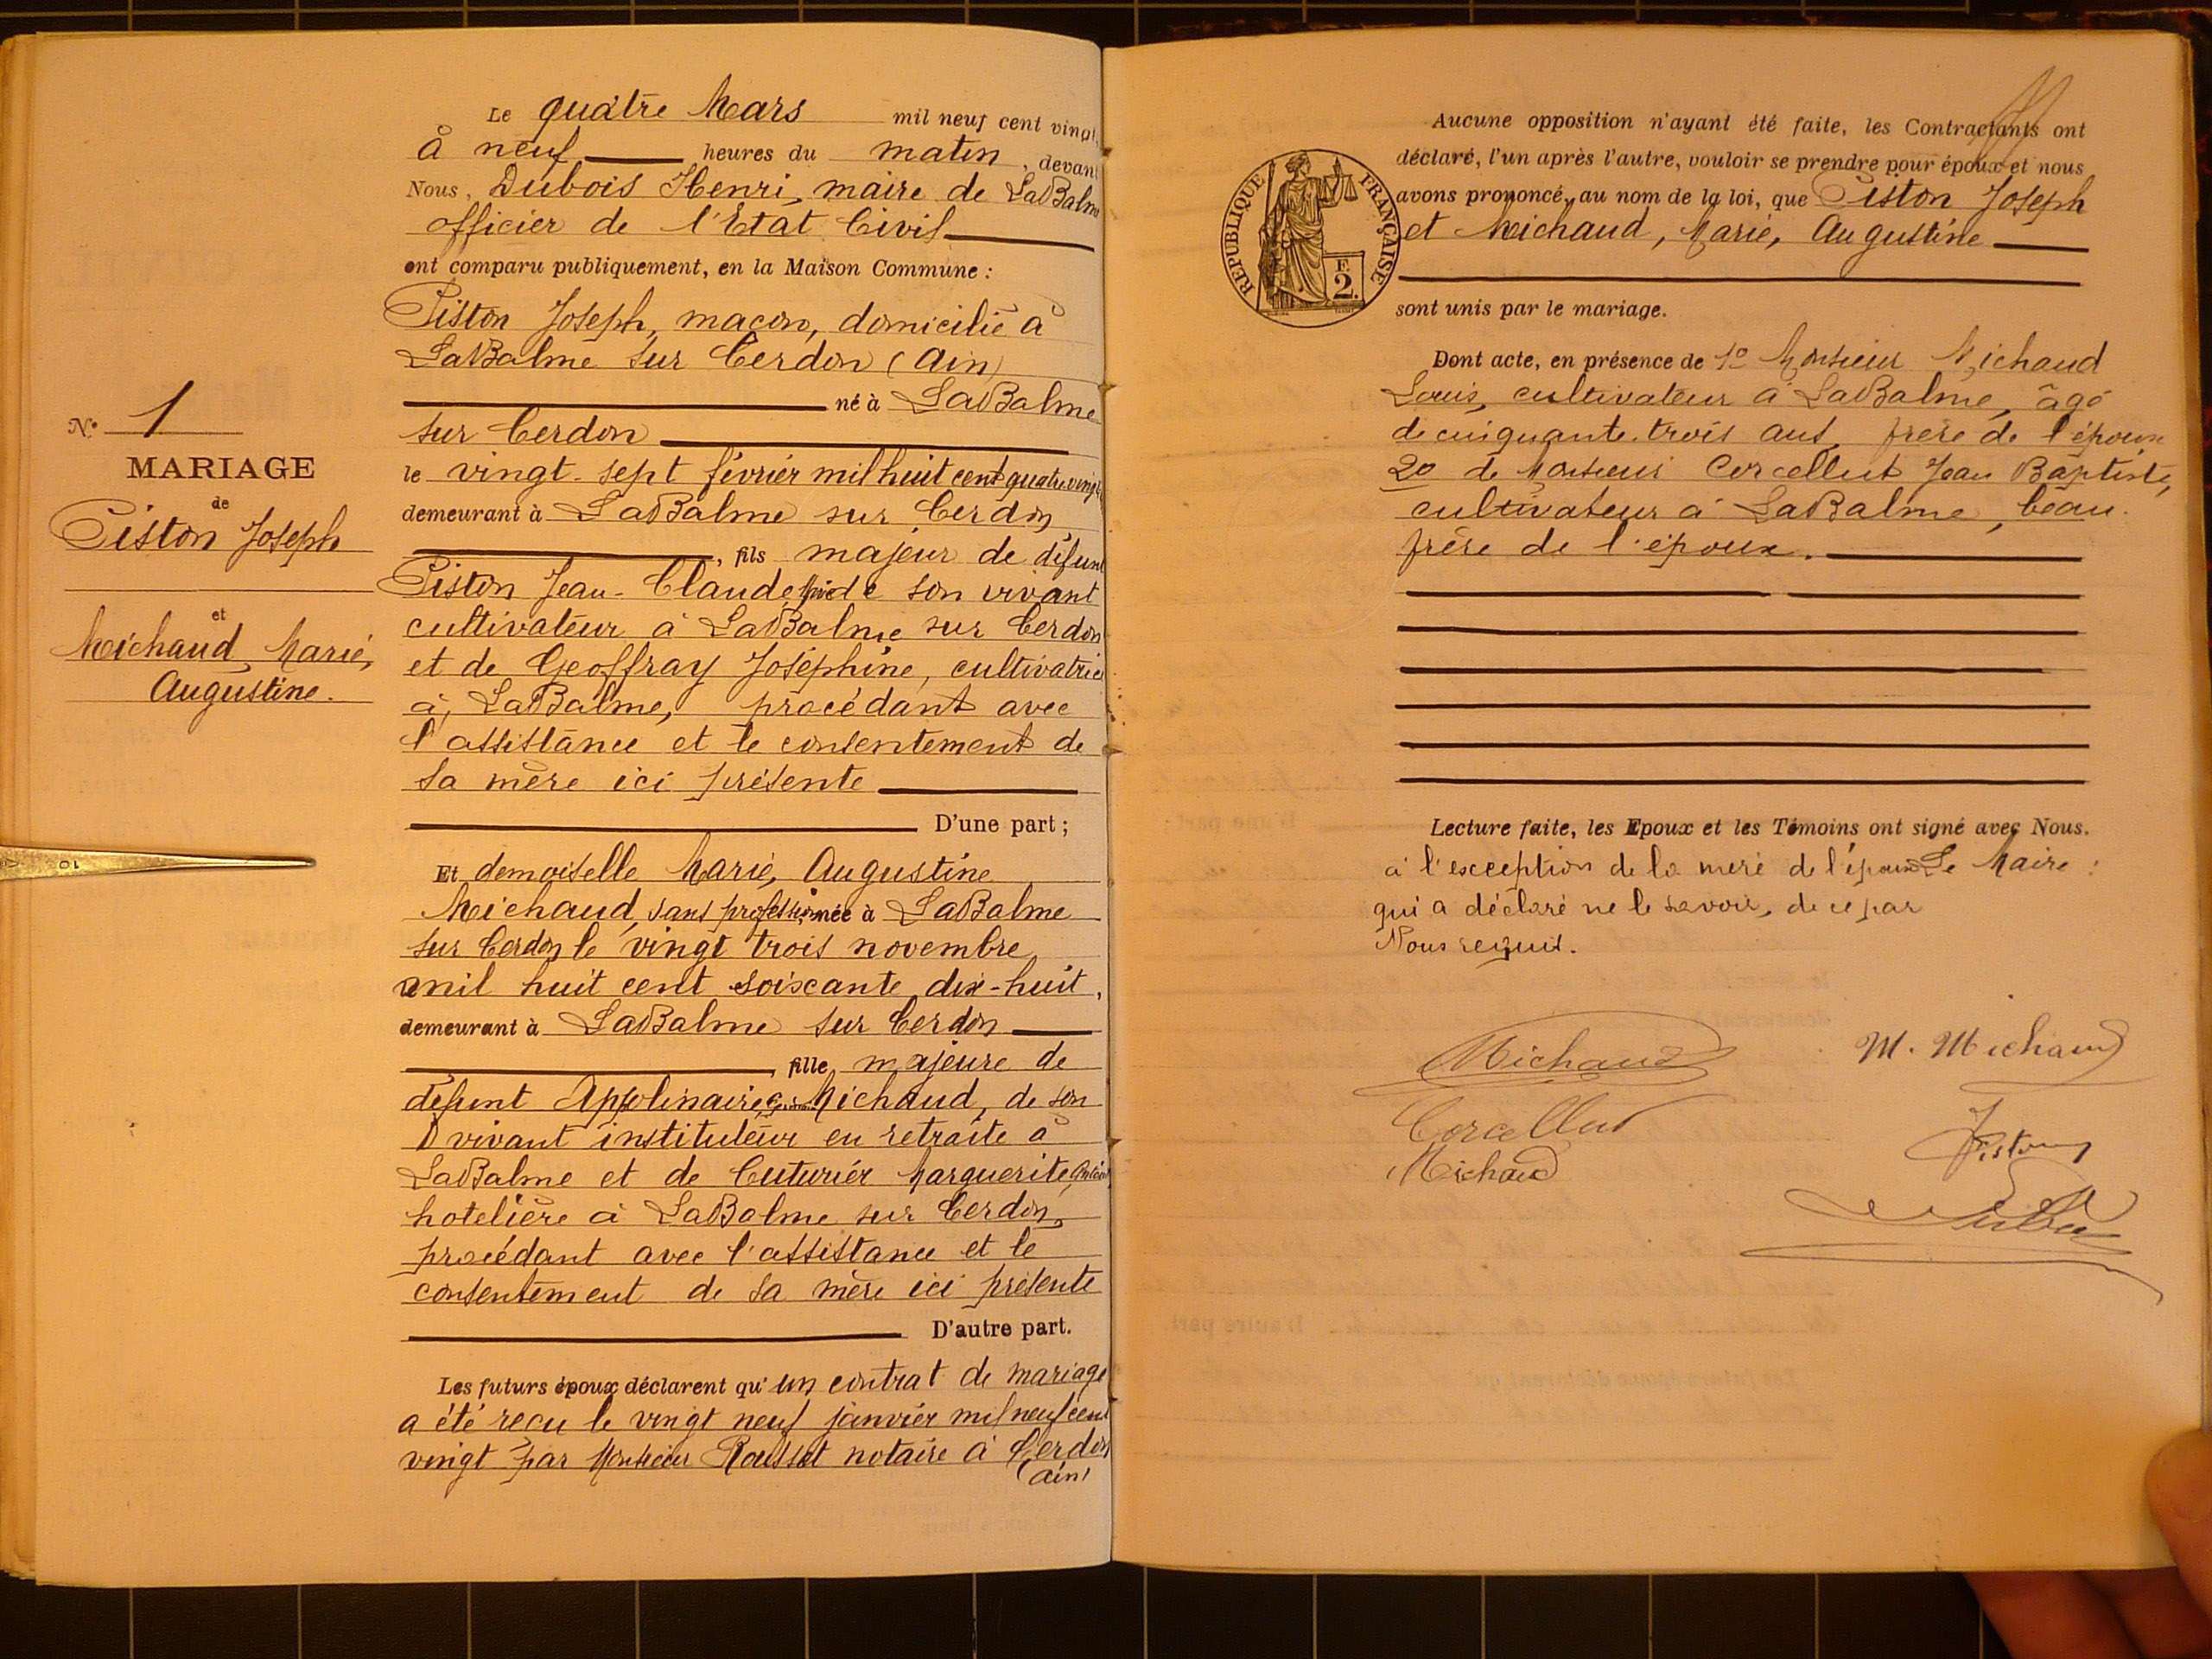 N.° 1
MARIAGE
de
Piston Joseph
et
Michaud, Marie,
Augustine.
Le quatre Mars mil neuf cent vingt
à neuf heures du matin, devant
Nous, Dubois Henri, maire de LaBalme
officier de l'Etat Civil
ont comparu publiquement, en la Maison Commune :
Piston Joseph, maçon, domicilié à
LaBalme sur Cerdon (Ain)
né à LaBalme
sur Cerdon
le vingt-sept février mil huit cent quatre vingt
demeurant à LaBalme sur Cerdon
, fils majeur de défunt
Piston Jean-Claude de son vivant
cultivateur à LaBalme sur Cerdon
et de Geoffray Joséphine, cultivatrice
à, LaBalme, procédant avec
l'assistance et le consentement de
sa mère ici présente
D'une part ;
Et demoiselle Marie, Augustine
Michaud, sans profession née à LaBalme
sur Cerdon le vingt trois novembre
mil huit cent soixante dix-huit,
demeurant à LaBalme sur Cerdon
, fille majeure de
défunt Appolinaire Michaud, de son
vivant instituteur en retraite à
LaBalme et de Cuturier Marguerite
hotelière à LaBalme sur Cerdon,
procédant avec l'assistance et le
consentement de sa mère ici présente
D'autre part.
Les futurs époux déclarent qu'un contrat de mariage
a été reçu le vingt neuf janvier mil neuf cent
vingt par Monsieur Rousset notaire à Cerdon
(Ain)
Aucune opposition n'ayant été faite, les Contractants ont
déclaré, l'un après l'autre, vouloir se prendre pour époux et nous
avons prononcé, au nom de la loi, que Piston Joseph
et Michaud, Marie, Augustine
RÉPUBLIQUE FRANÇAISE
F.
2.
sont unis par le mariage.
Dont acte, en présence de 1° Monsieur Michaud
Louis, cultivateur à LaBalme, âgé
de cinquante-trois ans, frère de l'épouse
2° de Monsieur Corcellut Jean Baptiste,
cultivateur à LaBalme, beau-
frère de l'époux.
Lecture faite, les Epoux et les Témoins ont signé avec Nous.
à l'exception de la mère de l'époux Le Maire :
qui a déclaré ne le savoir, de ce par
Nous requis.
Michaud
M. Michaud
Corcellut
Piston
Michaud
Dubois